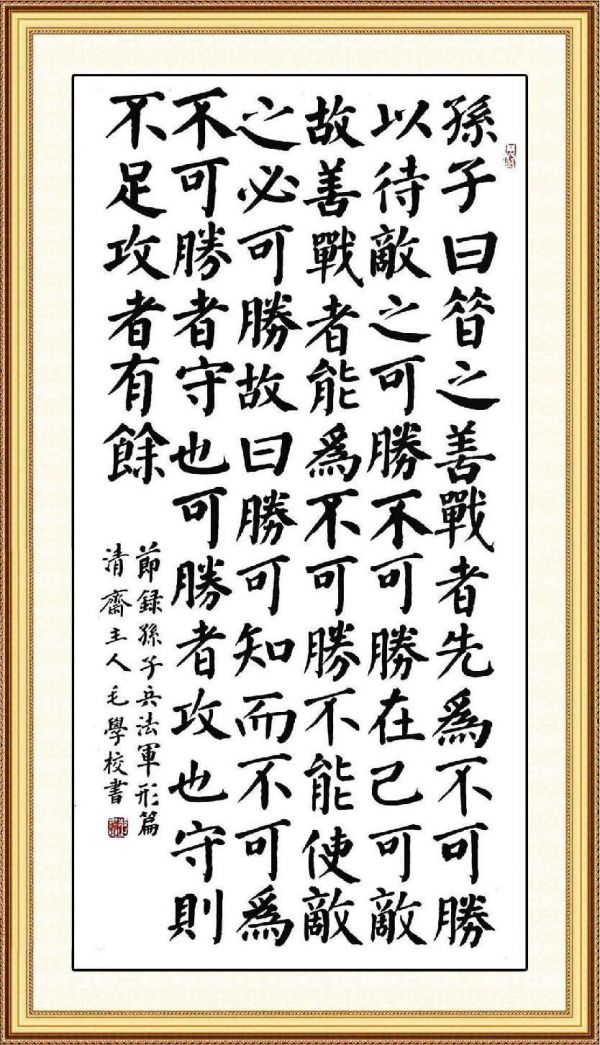 孫子曰昔之善戰者先爲不可勝
以待敵之可勝不可勝在己可敵
故善戰者能爲不可勝不能使敵
之必可勝故曰勝可知而不可爲
不可勝者守也可勝者攻也守則
不足攻者有餘
節録孫子兵法軍形篇
清齋主人毛學校書